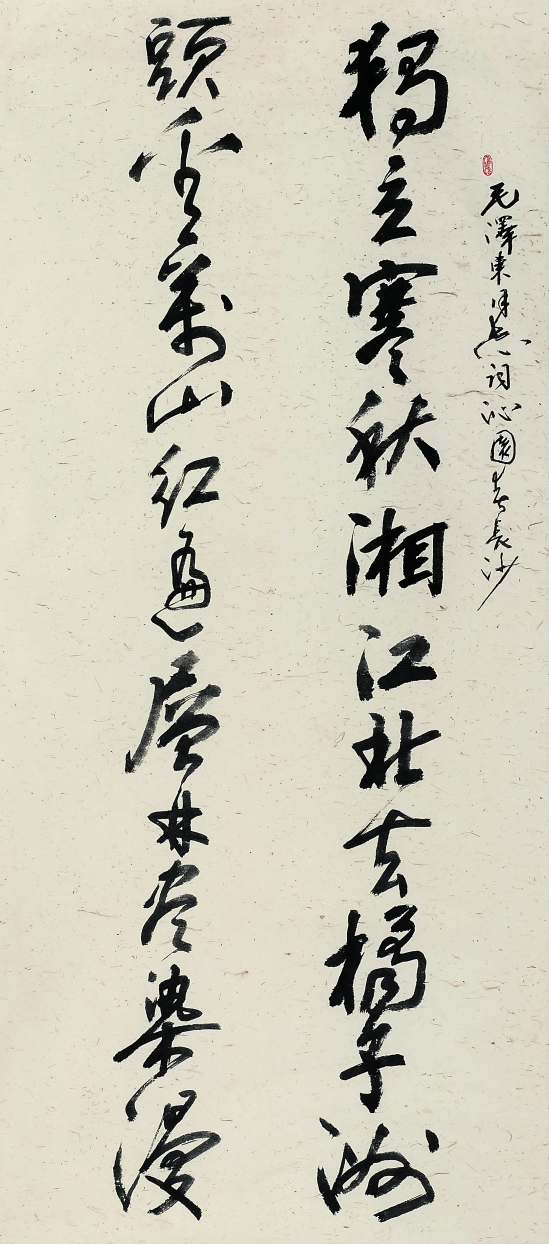 毛澤東同志詞沁園春長沙
獨立寒秋湘江北去橘子洲
頭看萬山紅遍層林尽染漫